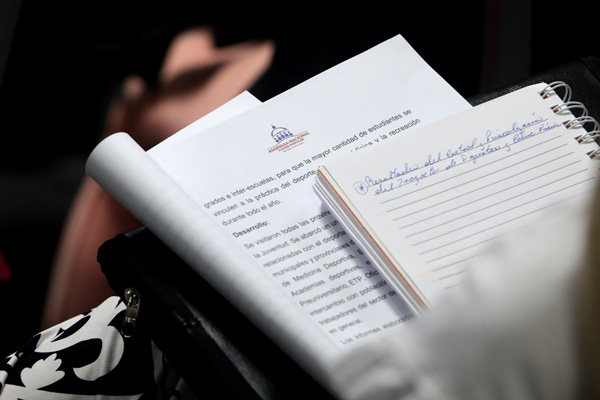 ASAMBLEA NACIONAL
grados e inter-escuelas, para que la mayor cantidad de estudiantes se
vinculen a la práctica del deporte física y la recreación
durante todo el año.
Desarrollo:
Se visitaron todas las provin
la Juventud. Se abarcó un
relacionadas con el deporte
municipales y provinciales d
de Medicina Deportiva, E
Academias deportivas, e
Preuniversitario, ETP, Ofic
intercambió con població
trabajadores del sector de
en general.
Los informes elaborad
Resultados del Control y Fiscalización
del Deportes y